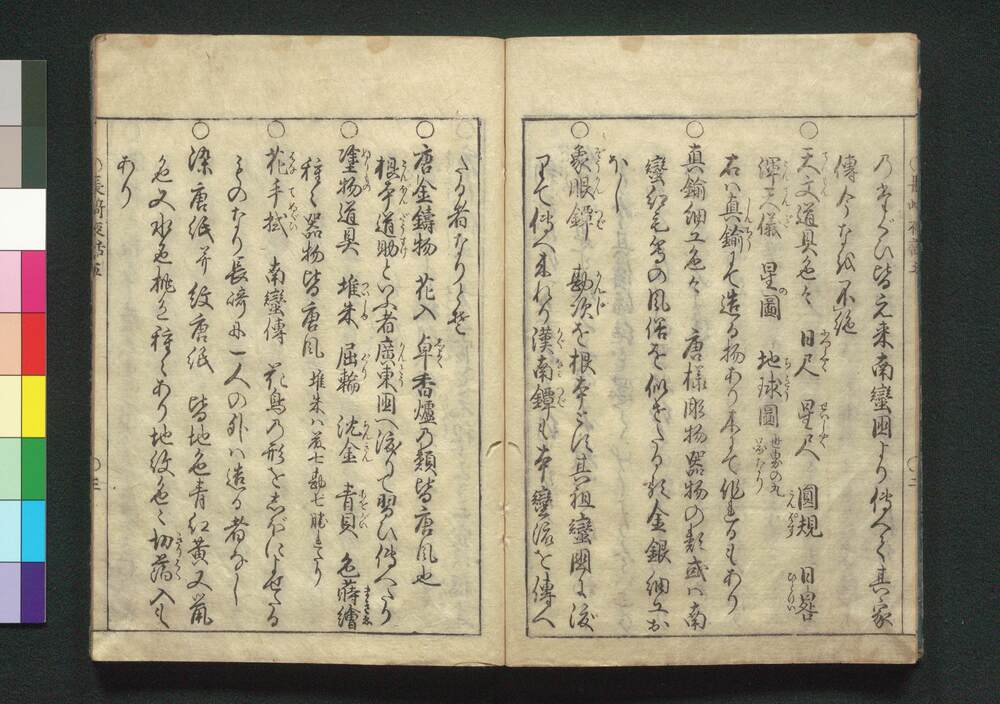 乃たぐひ皆元来南蠻国より傳へて其家
傳今なを不絶
○天文道具色々 日尺 星尺 圓規 日晷
渾天儀 星圖 地球圖 世界の丸
図なり
右ハ真鍮にて造る物あり木にて作るもあり
○真鍮細工色々 唐様彫物器物の類或ハ南
蠻紅毛等の風俗を似せたる形金銀細工お
なし
○象眼鐔 勘次を根本とす其祖蠻国に渡
りて傳へ来れり漢南鐔も本蠻流を傳へ
たる者なりとぞ
○唐金鋳物 花入 卓香爐乃類皆唐風也
根本道助といふ者廣東国へ渡りて習ひ傳へたり
○塗物道具 堆朱 屈輪 沈金 青貝 色蒔繪
種々器物皆唐風 堆朱ハ岩七勘七勝れたり
○花手拭 南蠻傳 花鳥乃形を
ものなり長崎に一人の外ハ造る者なし
○染唐紙并紋唐紙 皆地色青紅黄又鼠
色又水色桃色種々あり地紋色々切箔入も
あり
長崎夜話五
二
長崎夜話五
三